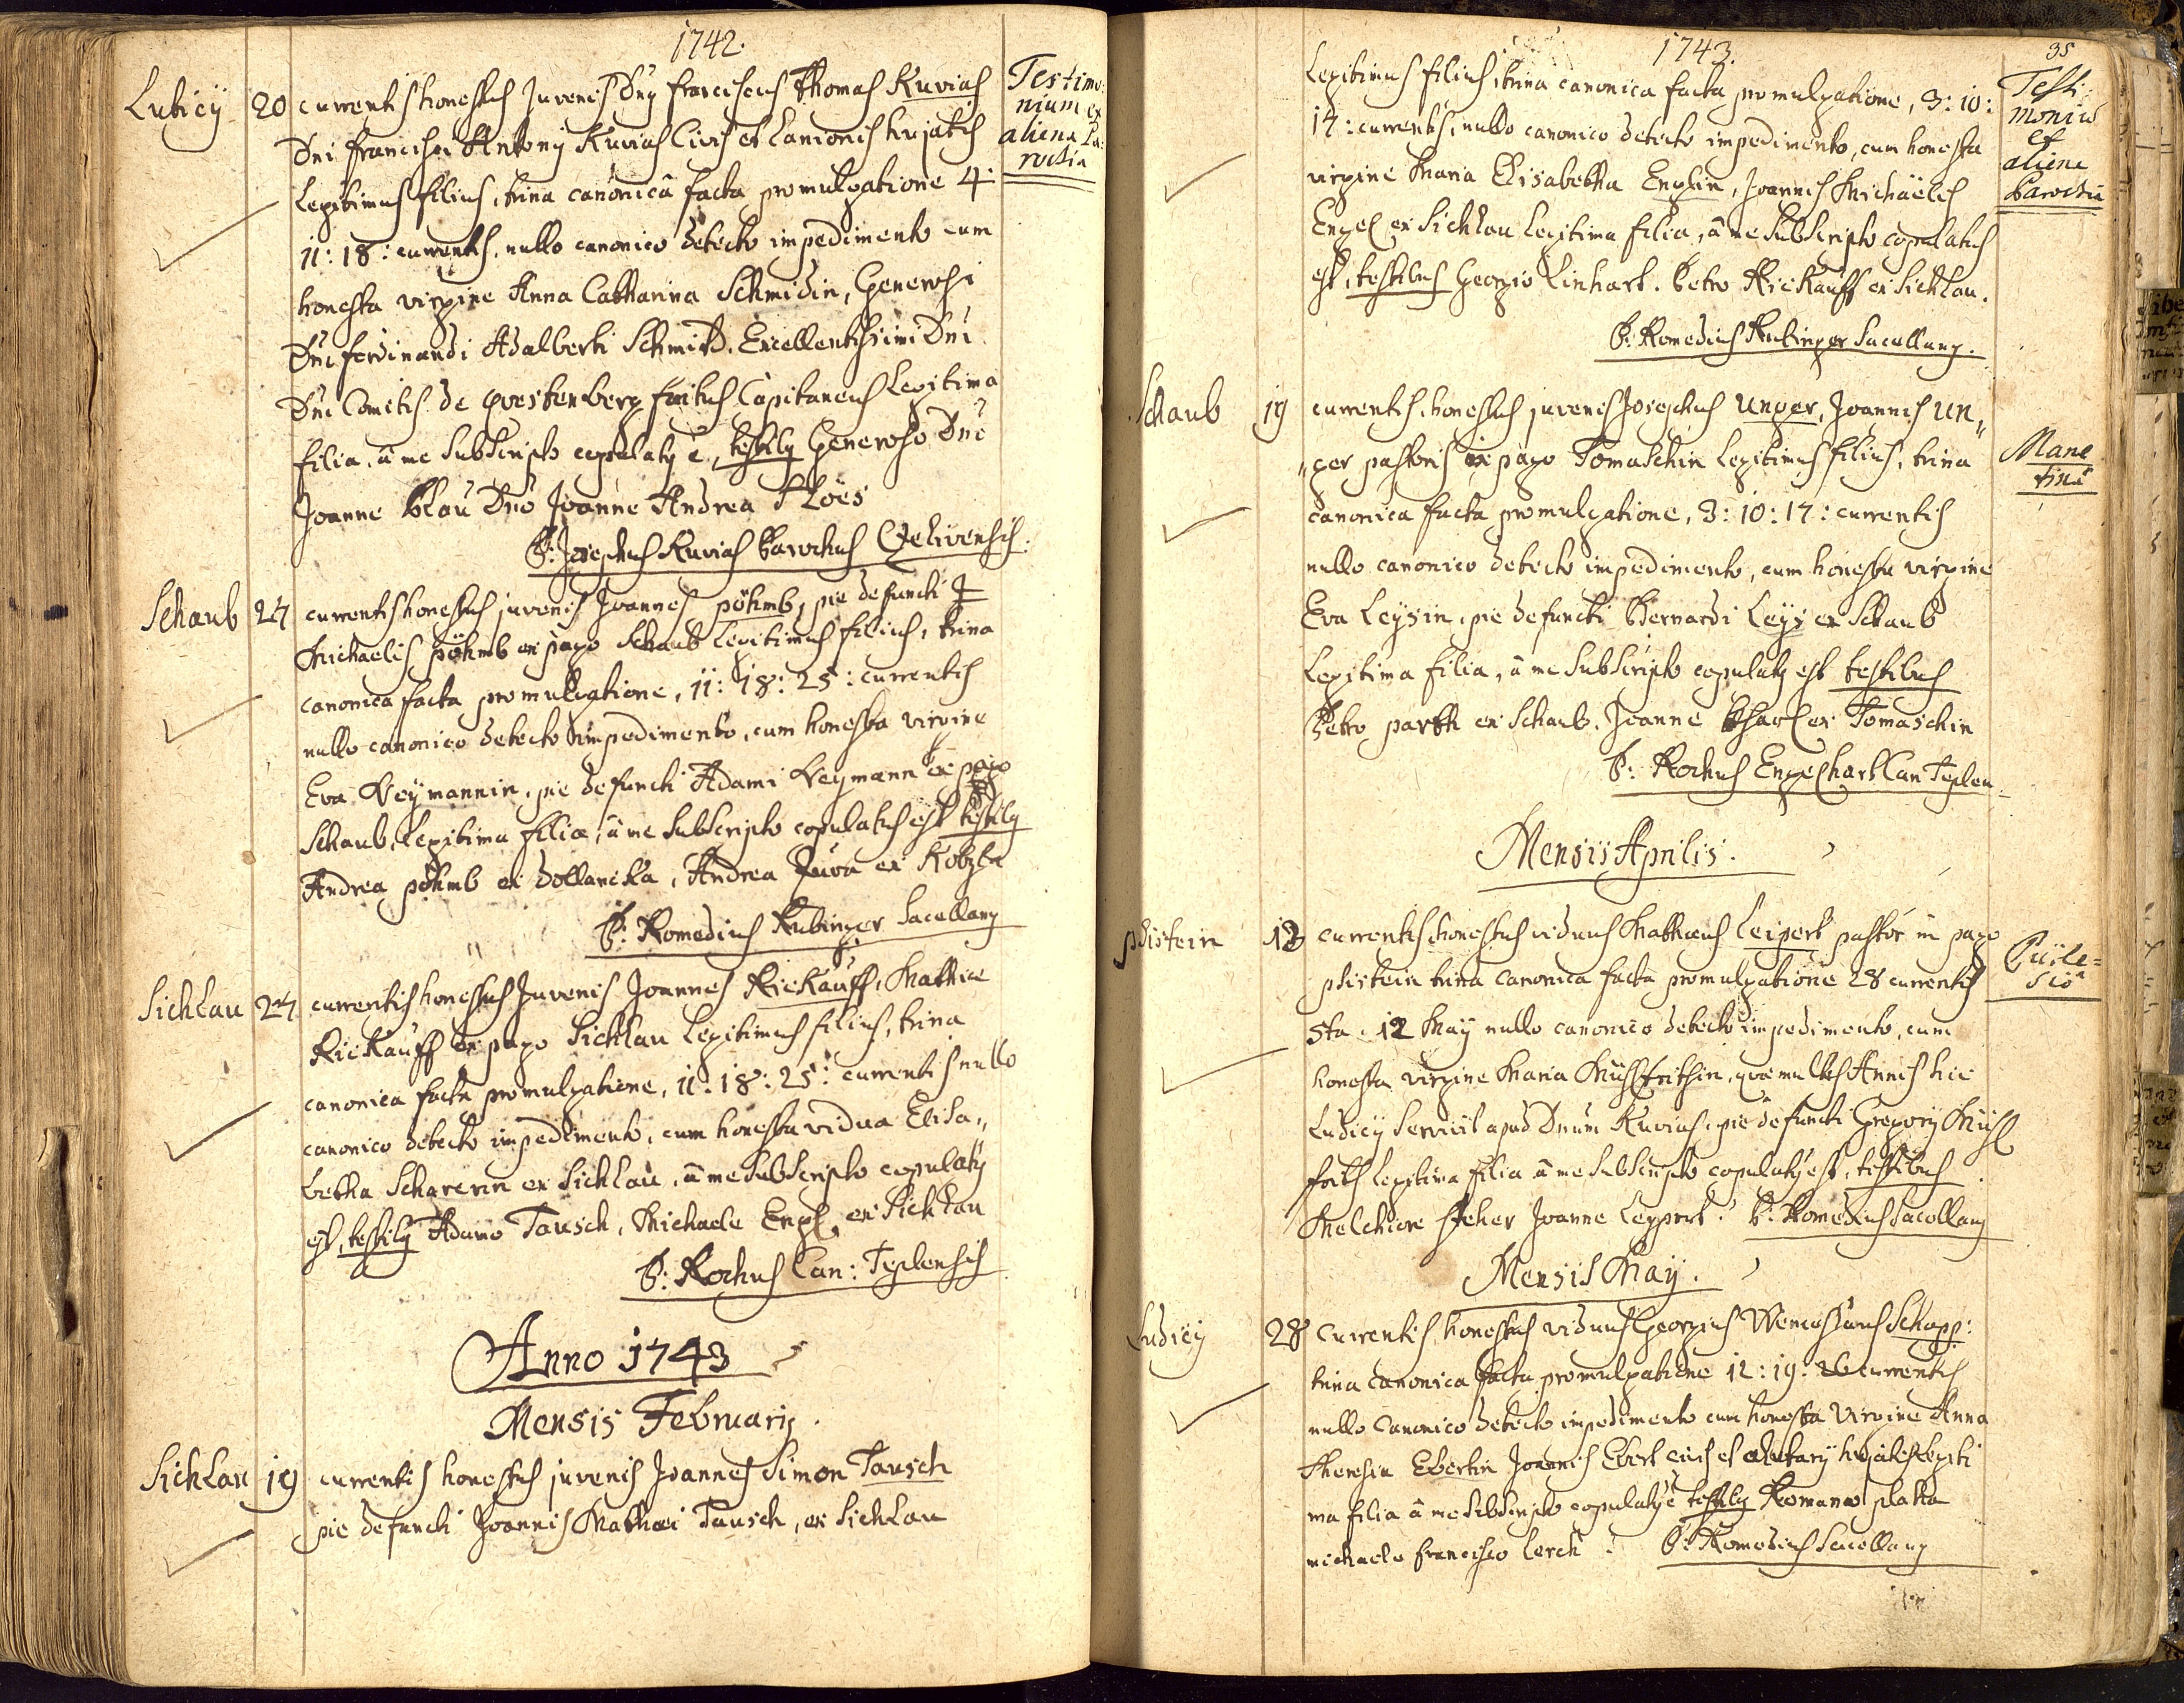 1742.
Testimo:
nium ex
aliena Pa:
rochia
Ludicÿ 20 currentis honestus Juvenis Dny Franciscus Thomas Kuvias
Dni Francisci Antonÿ Kuvias Civis et Lanionis hujatis
Legitimus filius, trina canonicâ facta promulgatione 4:
11: 18: currentis, nullo canonico detecto impedimento cum
honesta virgine Anna Catharina Schmidin, Generosi
Dni Ferdinandi Adalberti Schmid. Excellentissimi Dni
Dni Comitis de Questenberg Capitaneus Legitima
filia, â me subscripto copulatq ē, testibq Generoso Dno
Joanne Blau Dno Joanne Andrea Ploës
P: Josephus Kuvias Parochus
Schaub 27 currentis honestus juvenis Joannes pöhmb, pie defuncti
Michaelis pöhmb ex pago Schaub Legitimus filius, trina
canonica facta promulgatione, 11: 18: 25: currentis
nullo canonico detecto impedimento, cum honesta virgine
Eva Veymannin, pie defuncti Adami Veymann ex pago
Schaub, Legitima filia, â me subscripto copulatus est testibq
Andrea pöhmb ex dollancka, Andrea
P: Romedius Rubinger Sacellanq
Sichlau 27 currentis honestus Juvenis Joannes Rickauff, Mathiae
Rickauff ex pago Sichlau Legitimus filius, trina
canonica facta promulgatione, 11: 18: 25: currentis nullo
canonico detecto impedimento, cum honesta vidua Elisa„
betha Scharerin ex Sichlau, â me subscripto copulatq
est, testibq Adamo Tausch, Michaele Engl, ex Sichlau
P: Rochus Can: Teplensis
Anno 1743
Mensis Februarÿ.
Sichlau 19 currentis honestus juvenis Joannes Simon Tausch
pie defuncti Joannis Mathaei Tausch, ex Sichlau
1743.
35
Testi:
moniū
ex
aliena
Parochiâ
Legitimus filius, trina canonica facta promulgatione, 3: 10:
17: currentis, nullo canonico detecto impedimento, cum honesta
virgine Maria Elisabetha Englin, Joannis Michaëlis
Engel ex Sichlau Legitima filia, â me subscripto copulatus
est, testibus Georgio Linhart. Petro Rickauff ex Sichlau.
P: Romedius Rubinger Sacellanq.
Schaub 19 currentis, honestus juvenis Josephus Unger, Joannis Un„
„ger pastoris ex pago Tomaschin Legitimus filius, trina
Mane
tinē
canonica facta promulgatione, 3: 10: 17: currentis
nullo canonico detecto impedimento, cum honesta virgine
Eva Leysin, pie defuncti Bernardi Leys ex Schaub
Legitima filia, â me subscripto copulatq est testibus
Petro parth ex Schaub. Joanne ex Tomaschin
P: Rochus Engelhart Can Teplen
Mensis Aprilis.
phistein 13 currentis honestus viduus Mathaeus Leipert pastor in pago
phistein trina canonica facta promulgatione 28 currentis
5ta. 12 Maÿ nullo canonico detecto impedimento, cum
honesta virgine Maria, quae multis Annis hic
Ludicÿ servivit apud Dnum Kuvias, pie defuncti Gregorÿ Mühl
Legitima filia â me subscripto copulatq est, testibus
Melchiore Joanne Leypert. P: Romedius Sacellanq
Mensis Maÿ.
Ludicÿ 28 Currentis honestus viduus Georgius Wenceslaus Schopp:
trina canonica facta promulgatione 12: 19: 26 currentis
nullo canonico detecto impedimento cum honesta Virgine Anna
Theresia Ebertin Joannis Ebert civis et hujatis legiti
ma filia â me subscripto copulatq ē testibq Romano platta
michaele Francisco Lerch. P: Romedius Sacellanq